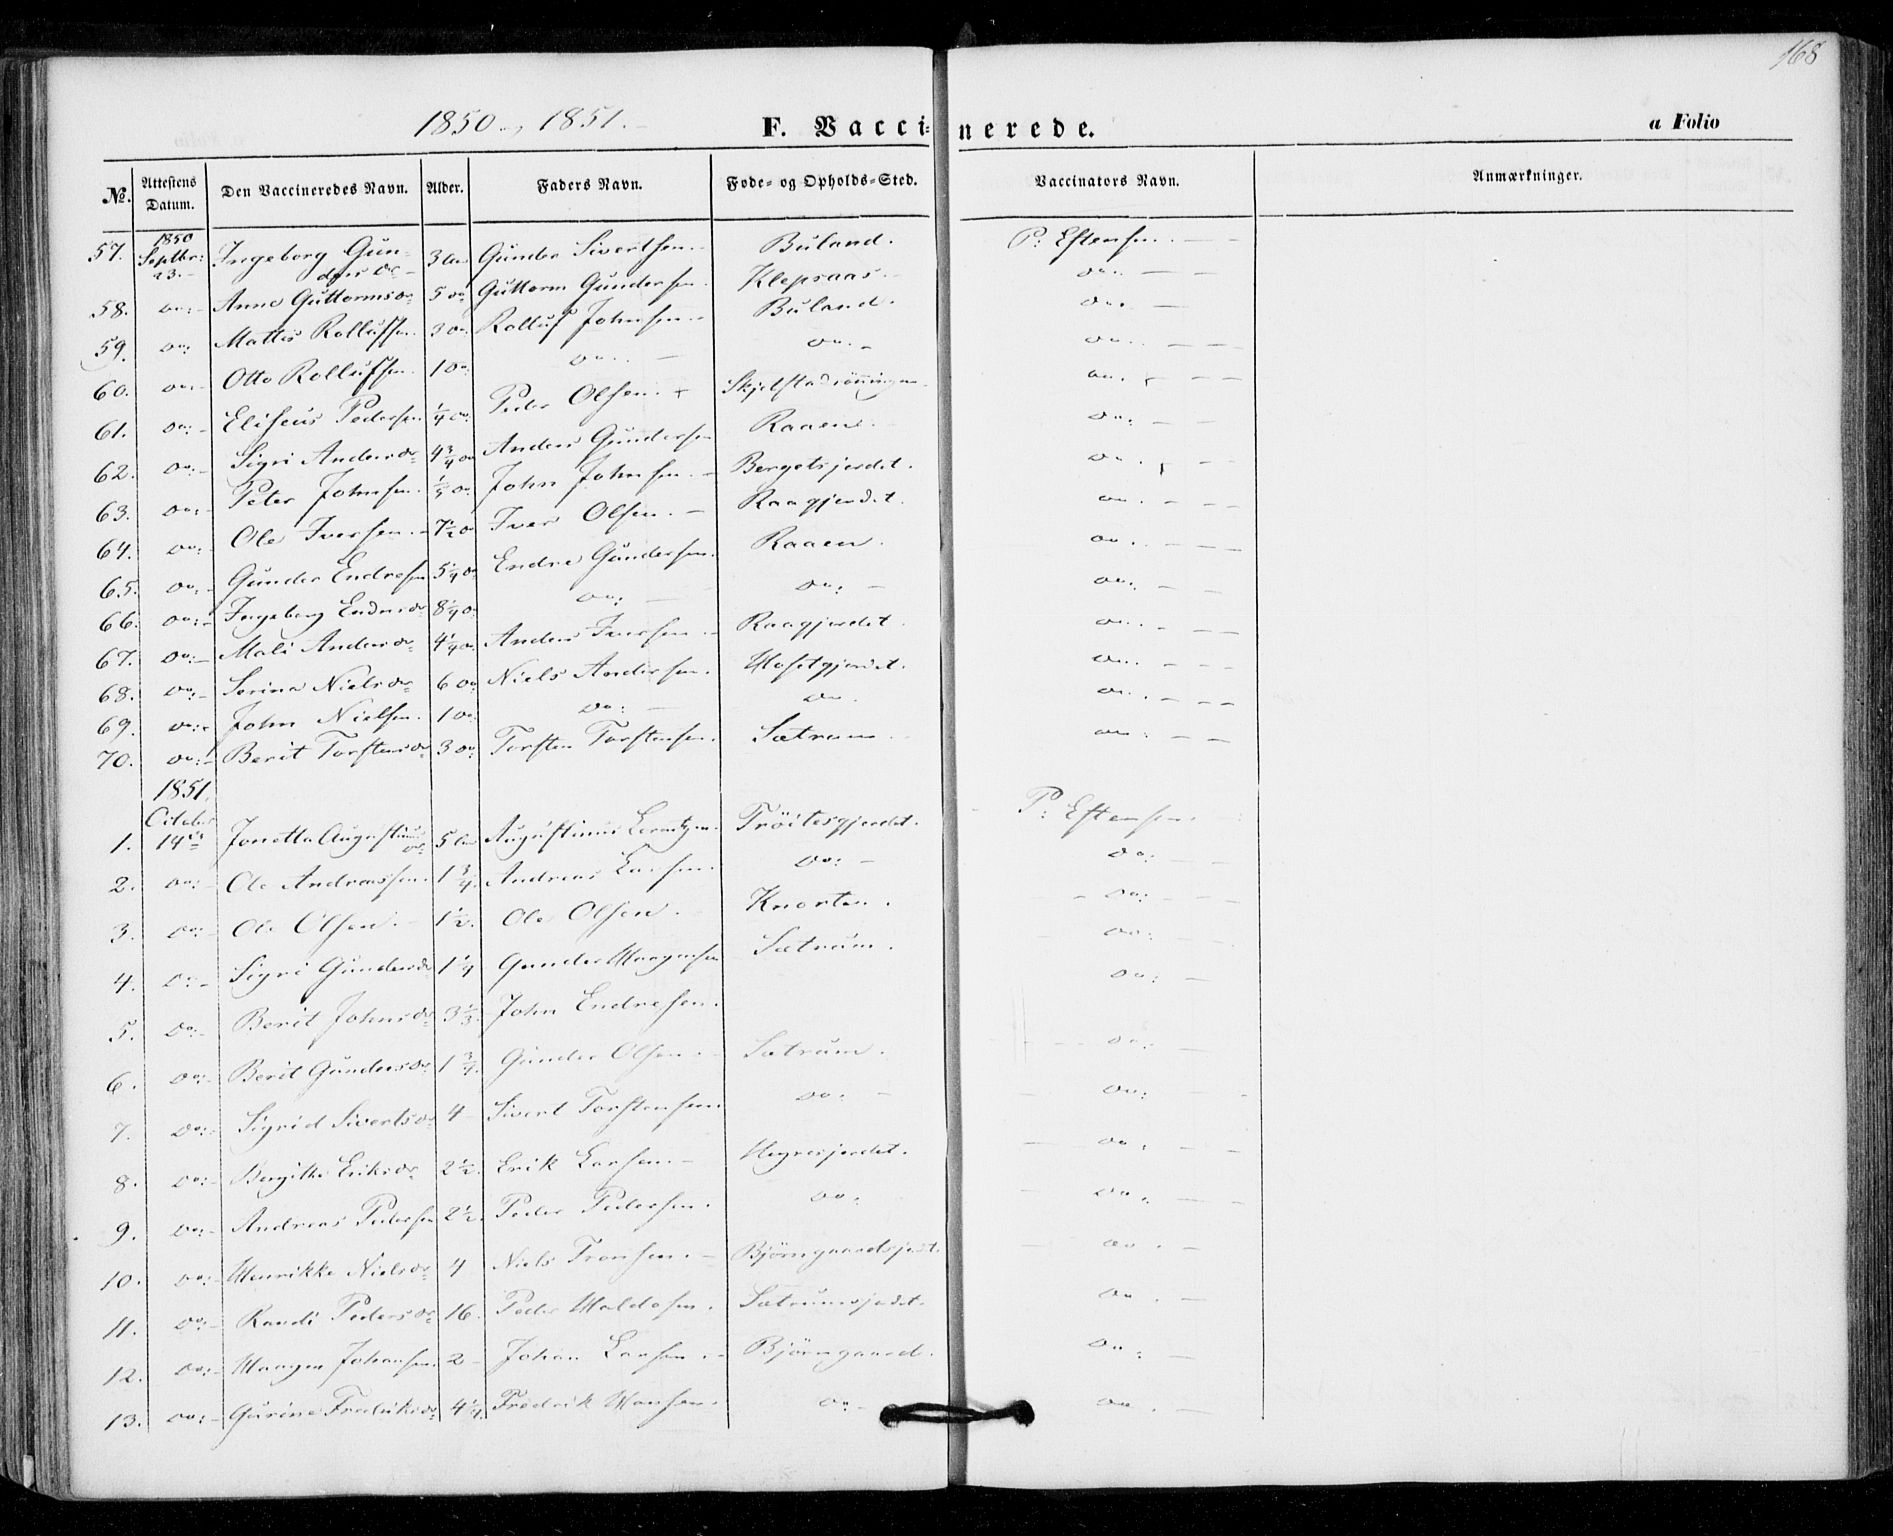 168
1850 og 1851.
F. Vaccinerede.
a Folio
No. Attestens Datum. Den Vaccineredes Navn. Alder. Faders Navn. Føde- og Opholds-Sted. Vaccinators Navn. Anmærkninger.
1850
57. Septbr: 23. Ingeborg Gundersdr 3 Gunder Sivertsen. Buland. P: Estensen.
58. do: Anne Guttormsdr 5 do Guttorm Gundersen. Klepsaas. do.
59. do: Mattis Rolluffsen. 3 do. Rolluf Johnsen. Buland. do.
60. do: Otto Rolluffsen. 1 do: do. do. do.
61. do: Eliseus Pedersen 1/4 do: Peder Olsen. Skjelstadrönningen do.
62. do: Sigri Andersdr 4 3/4 do Anders Gundersen Raaen. do:
63. do: Peter Johnsen. do. John Johnsen. Bergetsjerdet. do.
64. do: Ole Iversen. 7 1/2 do Iver Olsen. Raagjerdet. do.
65. do: Gunder Endresen 5 1/4 do Endre Gundersen. Raaen. do.
66. do: Ingeborg Endresdr 8 1/4 do. do: do: do:
67. do: Mali Andersdr 4 1/4 do. Anders Iversen. Raagjerdet. do.
68. do: Serina Nielsdr 6 do Niels Andersen. Mosetgjerdet. do.
69. do: John Nielsen. 1 do: do: do. do.
70. do: Berit Torstensdr 3 do: Torsten Torstensen. Sætrum. do:
1851.
October
1. 14de Jonetta Augustinusdr 5 Augustinus Tröitesgjerdet. P: Estensen.
2. do: Ole Andreassen. 1 3/4. Andreas Larsen. do: do:
3. do: Ole Olsen. 1 1/2. Ole Olsen. Knorten. do:
4. do: Sigri Gundersdr 1 1/4 Gunder Maagensen Sætrum. do:
5. do: Berit Johnsdr 3 1/3. John Endresen. do:
6. do: Berit Gundersdr 1 3/4. Gunder Olsen. Sætrum. do:
7. do: Sigrid Sivertsdr 4 Sivert Torstensen do: do:
8. do: Bergitte Eriksdr 2 1/2. Erik Larsen. Hegresjerdet. do:
9. do: Andreas Pedersen 2 1/2. Peder Pedersen. do: do:
10. do: Henrikke Nielsdr 4 Niels Tronsen. Björngaardsjerdet. do.
11. do: Randi Pedersdr 16. Peder Haldosen. Sætrumsjerdet. do.
12. do: Maagen Johansen. 2 Johan Larsen. Björngaard. do:
13. do: Gurine Frederiksdr 4 1/4. Fredrik Hansen. do: do.